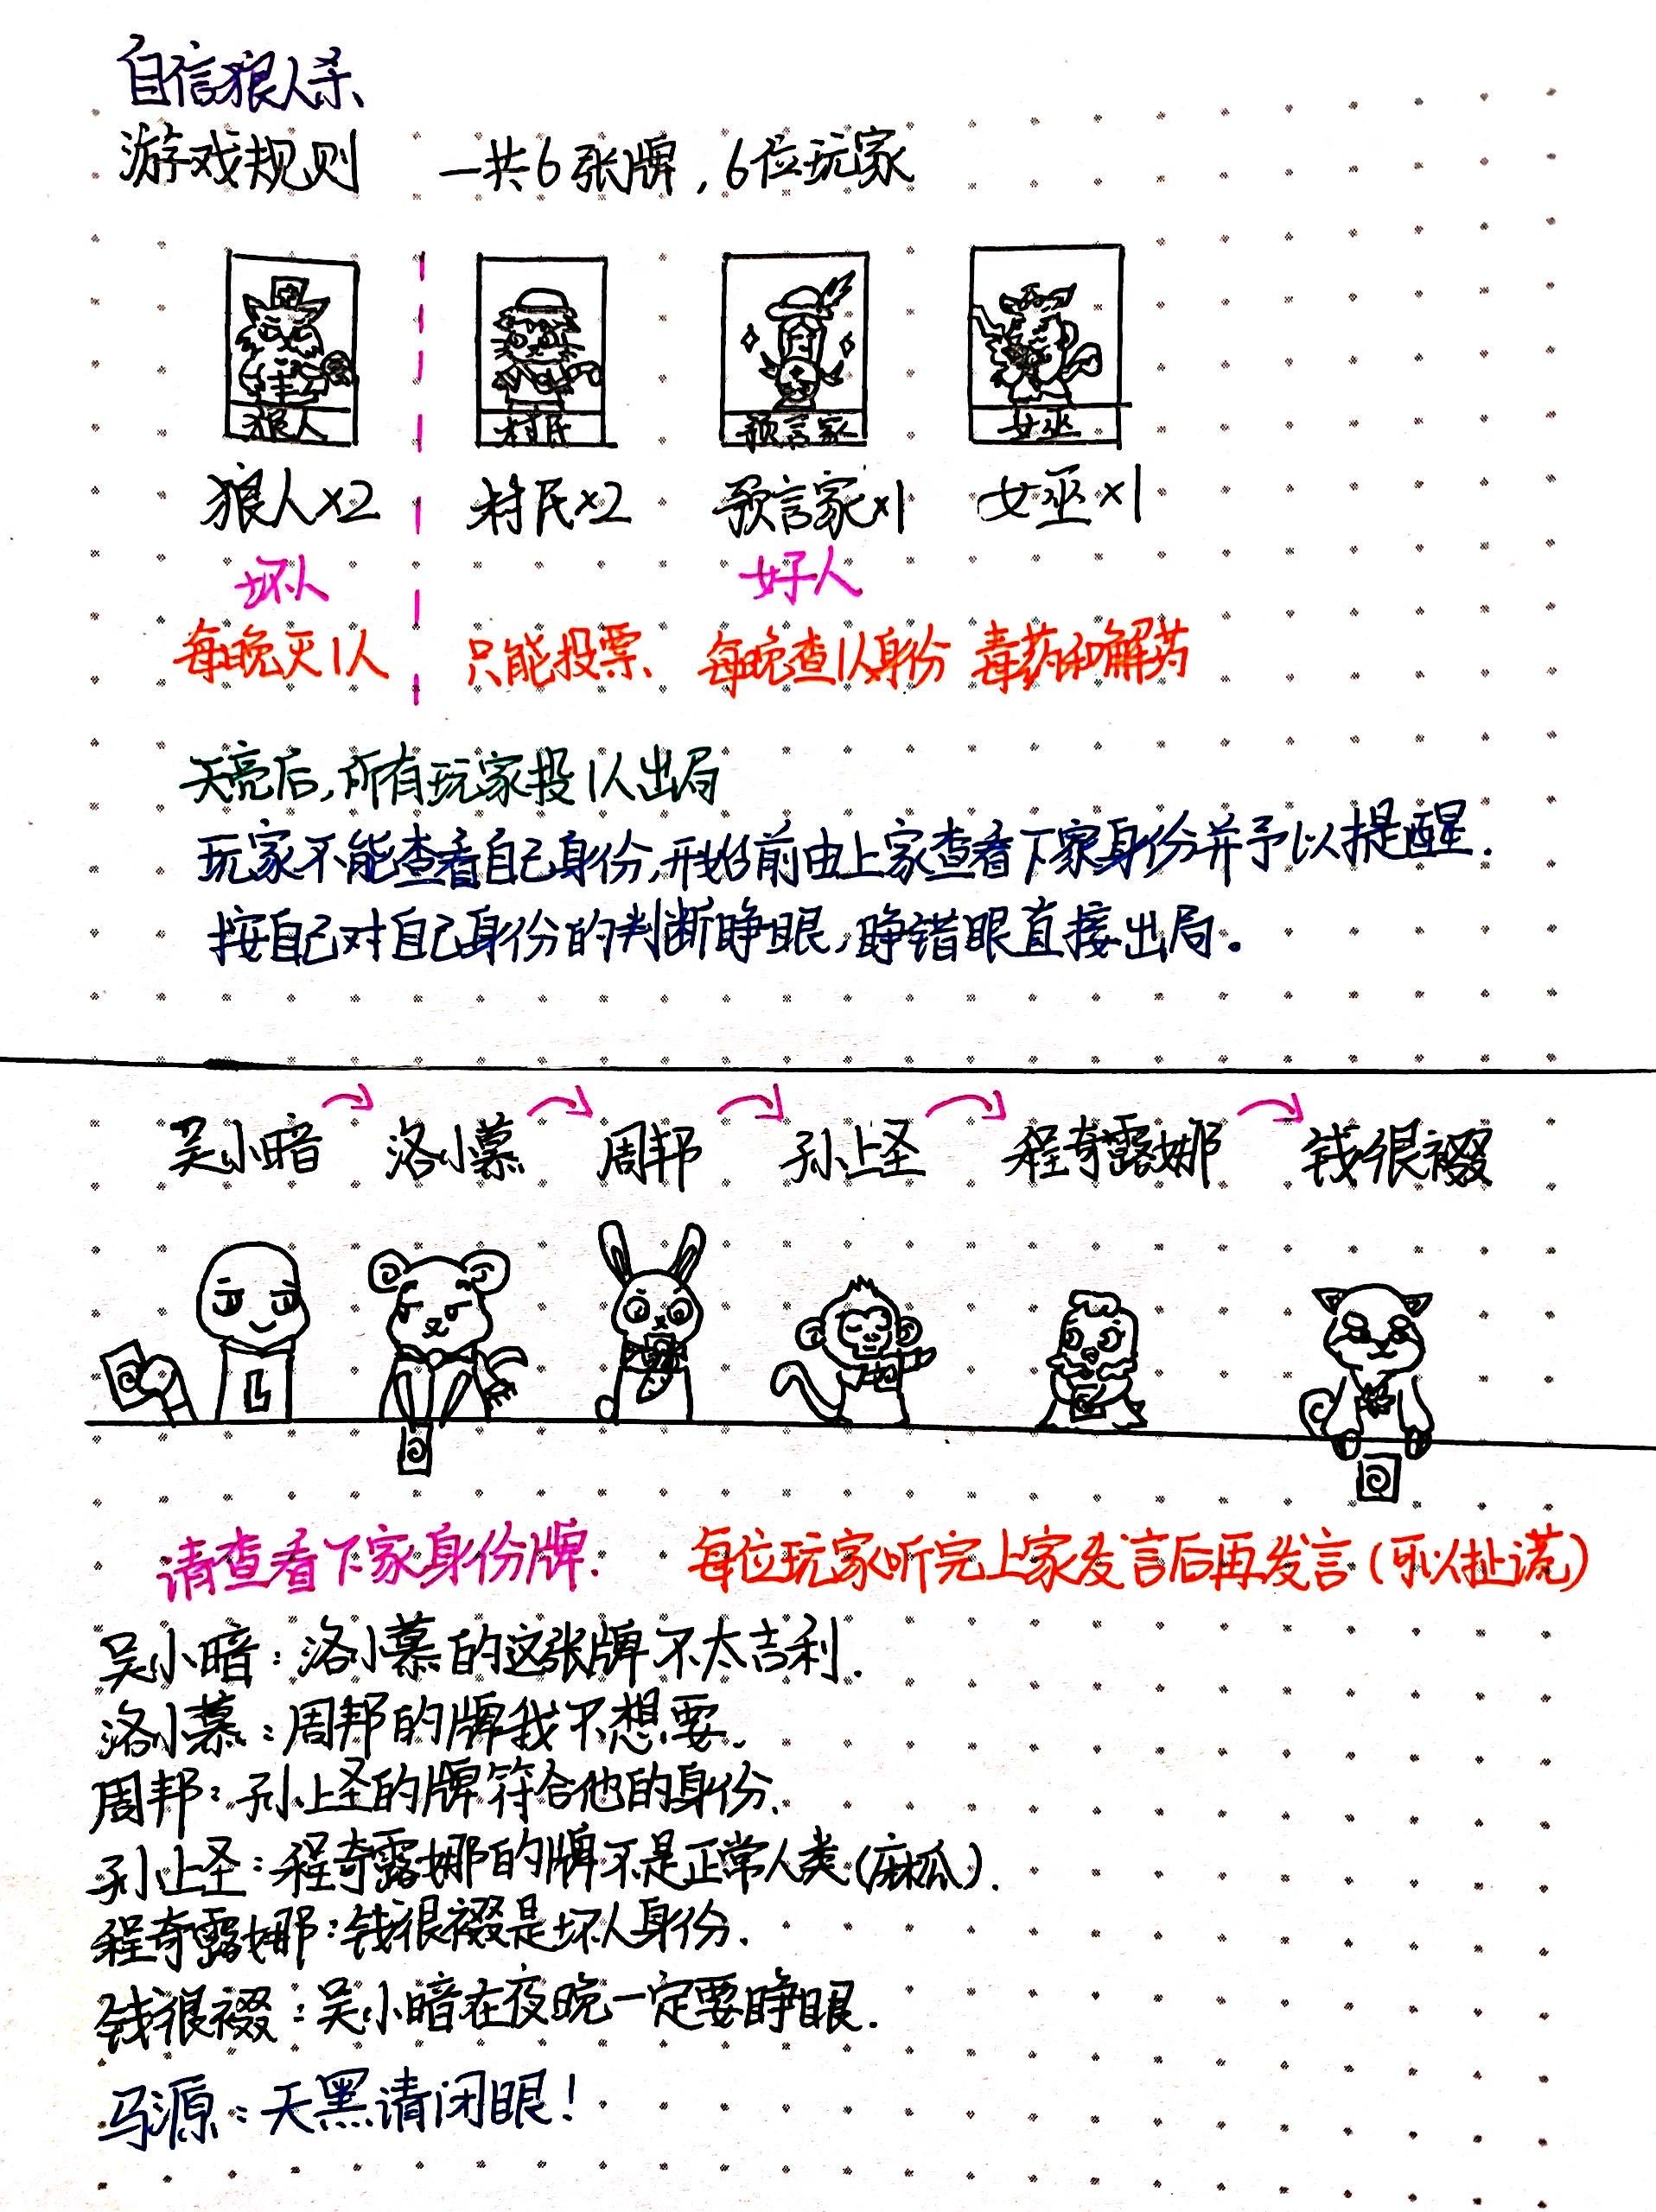 自信狼人杀
游戏规则 一共6张牌,6位玩家
狼人 村民 预言家 女巫
狼人×2 村民×2 预言家×1 女巫×1
坏人 好人
每晚灭1人 只能投票 每晚查1人身份 毒药和解药
天亮后,所有玩家投1人出局
玩家不能查看自己身份,开始前由上家查看下家身份并予以提醒.
按自己对自己身份的判断睁眼,睁错眼直接出局。
吴小暗 洛小慕 周邦 孙上圣 程奇露娜 钱很裰
请查看下家身份牌. 每位玩家听完上家发言后再发言(可以扯谎)
吴小暗:洛小慕的这张牌不太吉利.
洛小慕:周邦的牌我不想要.
周邦:孙上圣的牌符合他的身份.
孙上圣:程奇露娜的牌不是正常人类(麻瓜).
程奇露娜:钱很裰是坏人身份.
钱很裰:吴小暗在夜晚一定要睁眼.
马源:天黑请闭眼!